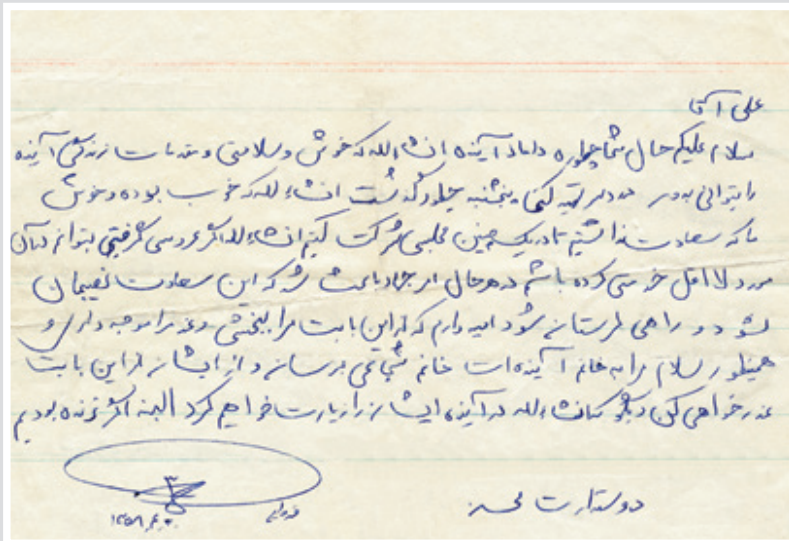 علی آقا
سلام علیکم حال شما چطوره داماد آینده انشاءالله که خوش و سلامتی و مقدمات زندگی آینده
را بتوانی بهتر تهیه کنی پنجشنبه چطور گذشت انشاءالله که خوب بوده و خوش
ما که سعادت نداشتیم تا در یک چنین مجلسی شرکت کنیم انشاءالله اگر عروسی گرفتی بتوانم در آن
مورد لااقل خدمتی کرده باشم در هر حال امر جهاد باعث شد که این سعادت نصیبمان
نشود و راهی لرستان شود امید دارم که از این بابت مرا ببخشی و عذر مرا موجه داری و
همینطور سلام مرا به خانم آینده ات خانم شجاعی برسان و از ایشان از این بابت
عذرخواهی کن و بگو که انشاءالله در آینده ایشان را زیارت خواهم کرد البته اگر زنده بودیم
دوستدارت